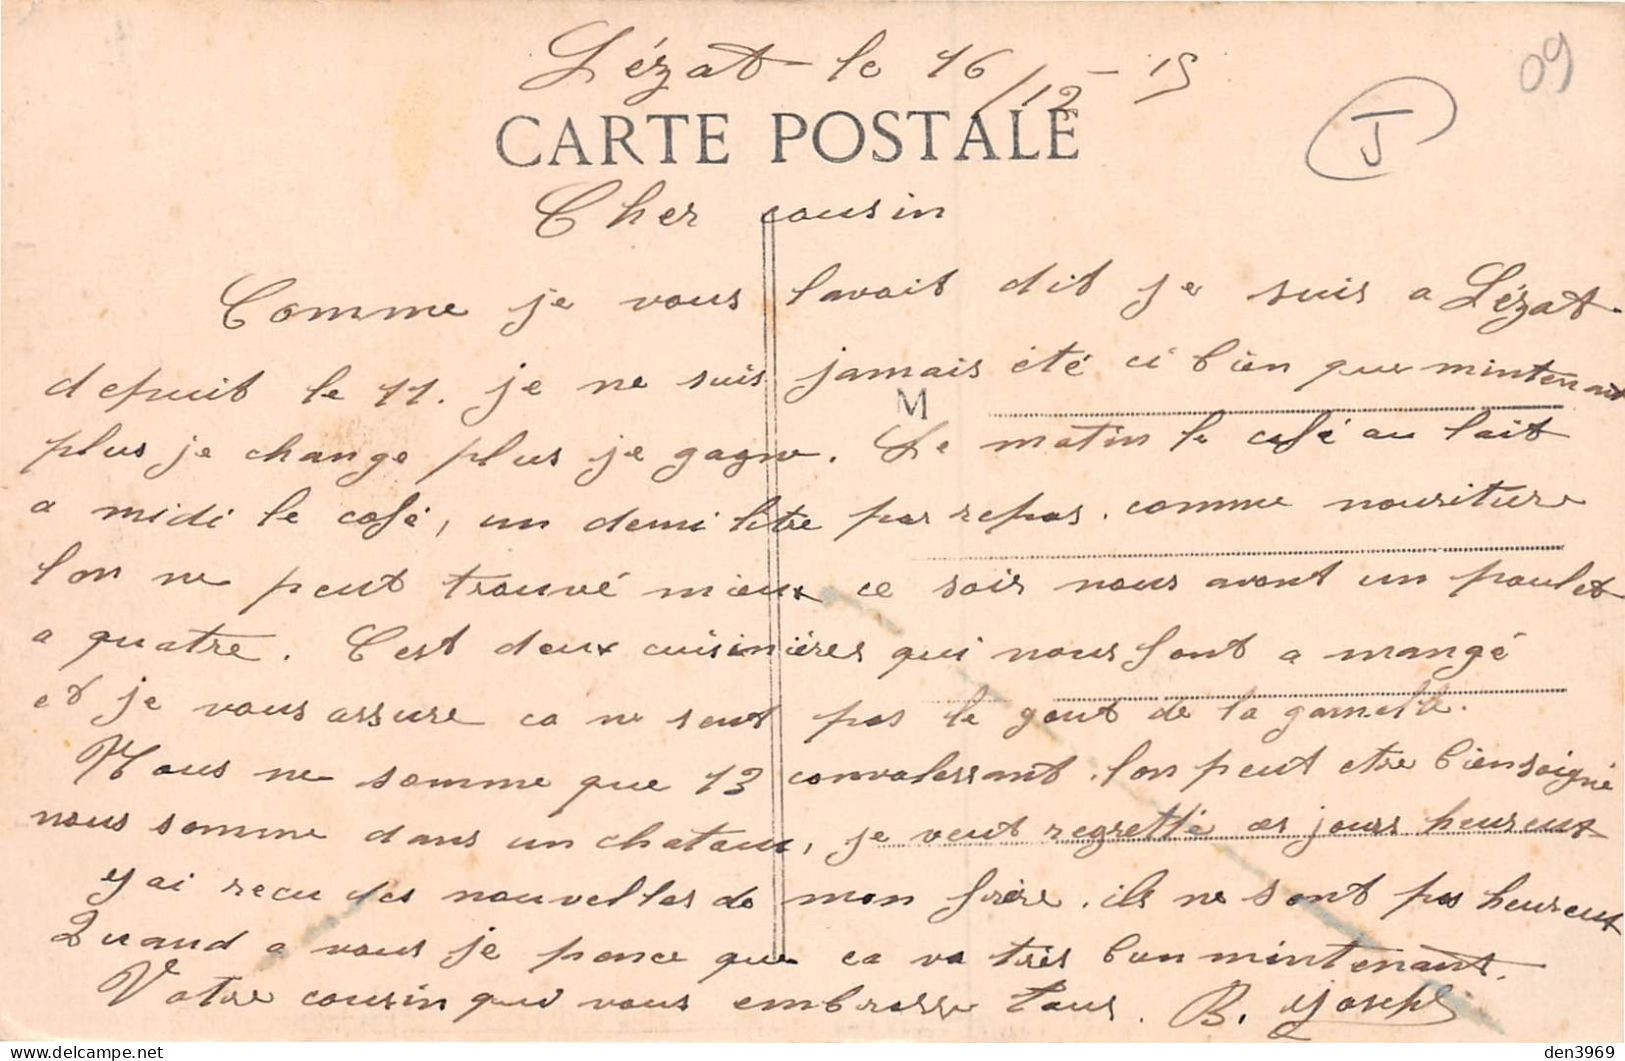 Lézat le 16/12-15
09
J
CARTE POSTALE
Cher cousin
Comme je vous lavait dit je suis a Lézat
depuit le 11. je ne suis jamais été ci bien que mintenant
M
plus je change plus je gagne. Le matin le café au lait
a midi le café, un demi litre par repas. comme nouriture
lon ne peut trouvé mieux ce soir nous avont un poulet
a quatre. C'est deux cuisinières qui nous font a mangé
et je vous assure ca ne sent pas le gout de la gamelle.
Nous ne somme que 13 convalessant. lon peut etre bien soigné
nous somme dans un chateau, je veut regretté ces jours heureux
y ai recu des nouvelles de mon frère. ils ne sont pas heureux
Quand a vous je pence que ca va tres bien mintenant.
Votre cousin qui vous embrasse tous. B. Joseph
den3969